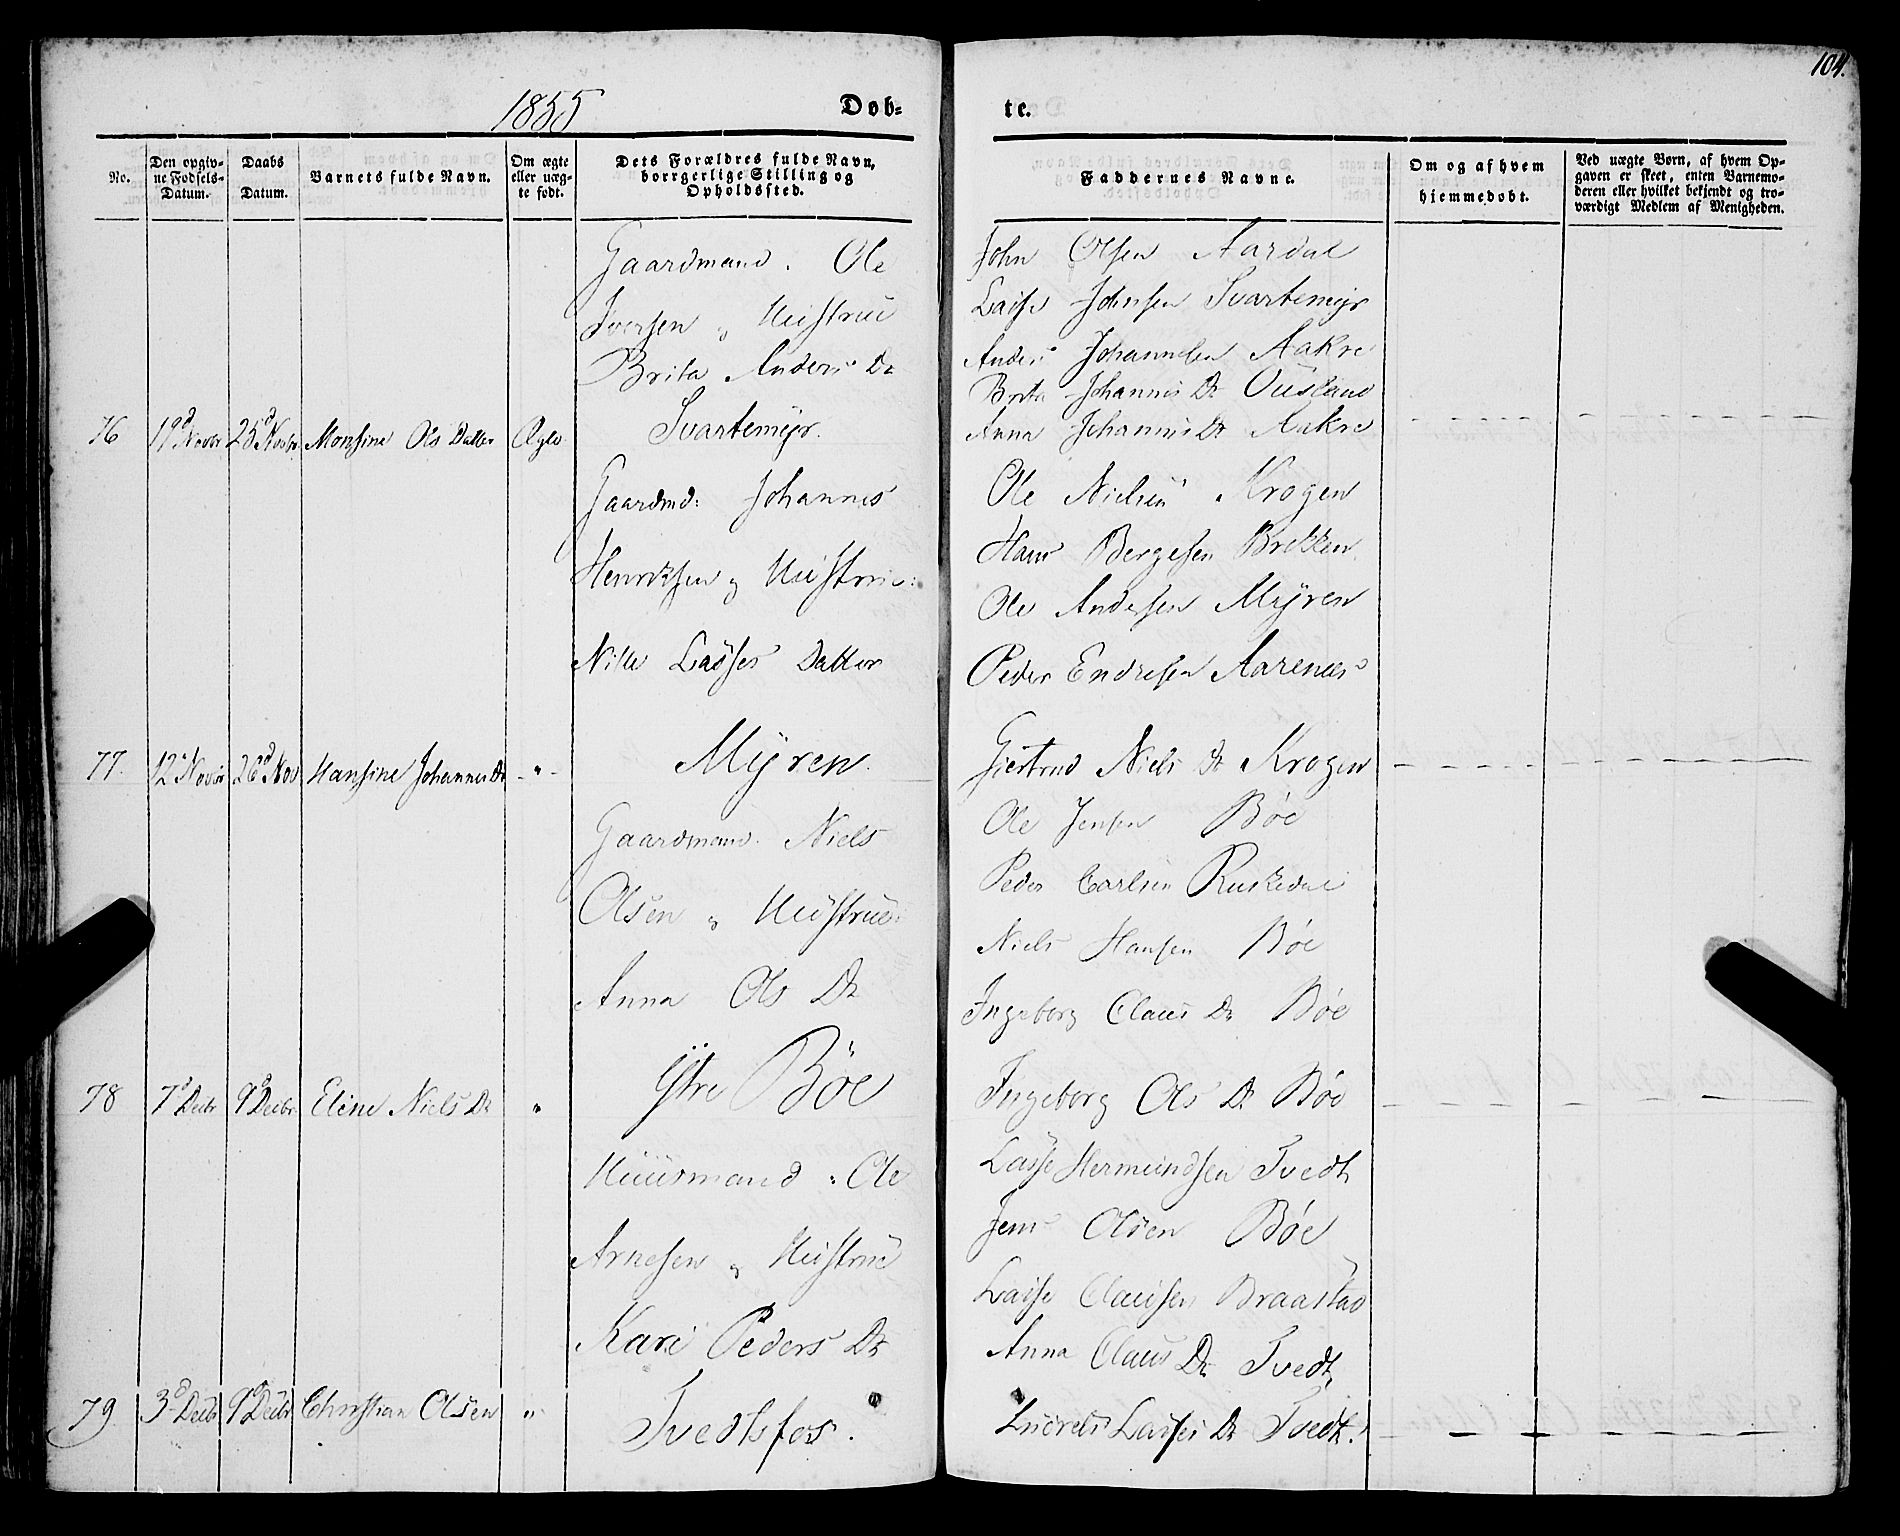 104.
1855
Døb-
te.
No.
Den opgiv-
ne Fødsels-
Datum.
Daabs
Datum.
Barnets fulde Navn.
Om ægte
eller uæg-
te født.
Dets Forældres fulde Navn,
borrgerlige Stilling og
Opholdssted.
Faddernes Navne.
Om og af hvem
hjemmedøbt.
Ved uægte Børn, af hvem Op-
gaven er skeet, enten Barnemo-
deren eller hvilket bekjendt og tro-
værdigt Medlem af Menigheden.
Gaardmand. Ole
Iversen og Huustrue
Brita Anders Dr
76 19d Novbr 25d Novbr Monsine Ols Datter Ægte Svartemyr.
John Olsen Aardal
Lasse Johnsen Svartemyr
Anders Johannesen Aakre
Brita Johannis Dr Ousland
Anna Johannis Dr Aakre
Gaardmd: Johannes
Henriksen og Huustrue:
Nille Lasses Datter
77. 12 Novbr 26d Nov Hansine Johannes Dr -"- Myren.
Ole Nielsen Krogen
Hans Bergesen Brekken
Ole Andersen Myren
Peder Endresen Aarenes
Giertrud Niels Dr Krogen
Gaardmand. Niels
Olsen og Huustrue
Anna Ols Dr
78 7d Decbr 9d Decbr Eline Niels Dr " Ytre Böe
Ole Jensen Böe
Peder Carlsen Ruskedal
Niels Hansen Böe
Ingeborg Claus Dr Böe
Ingeborg Ols Dr Böe
Huusmand: Ole
Arnesen og Huustrue
Kari Peders Dr
79. 3d Decbr 9d Decbr Christian Olsen " Tvedtsfos.
Lasse Hermundsen Tvedt
Jens Olsen Böe
Lasse Clausen Braastad
Anna Claus Dr Tvedt,
Lasses Dr Tvedt.